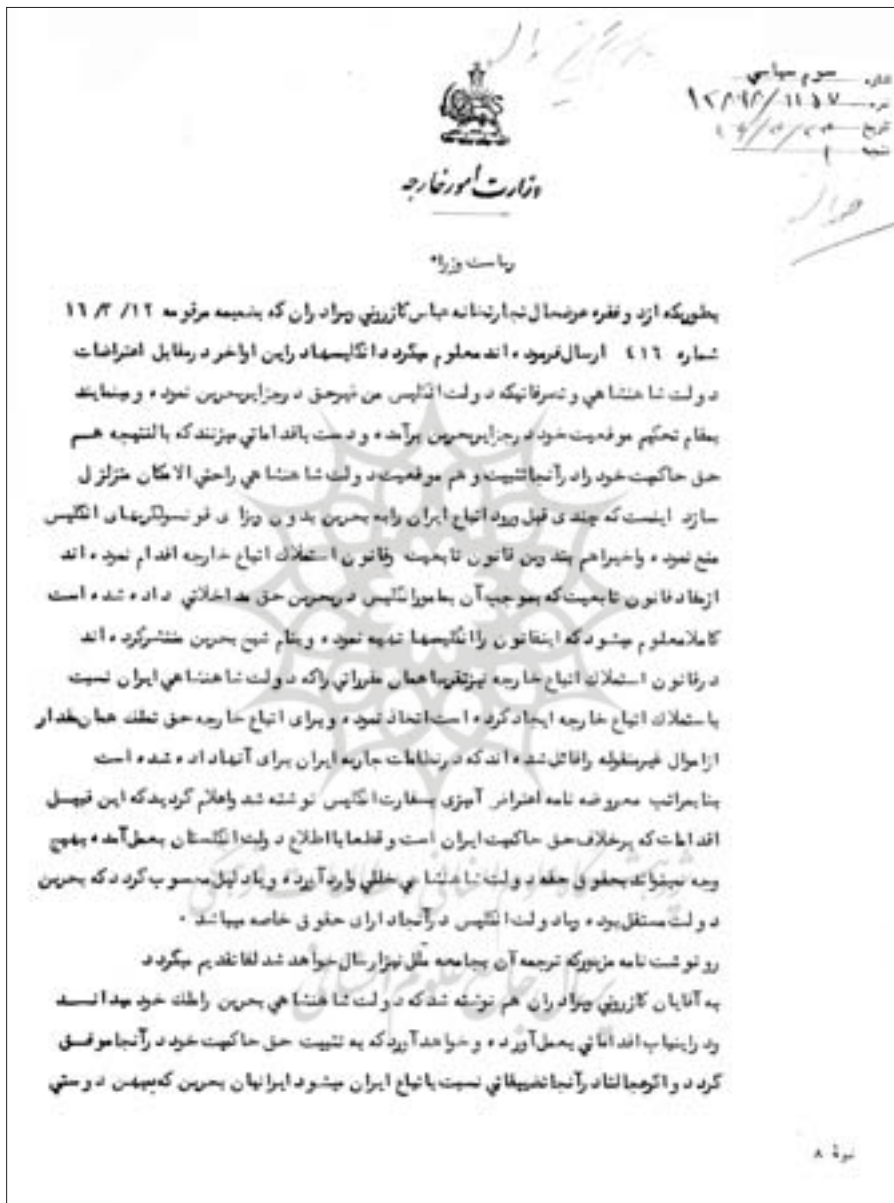 سوم سیاسی
اداره
نمره ۱۱۵۷
تاریخ
ضمیمه ۱
وزارت امور خارجه
ریاست وزراء
بطوریکه از دو فقره عرضحال تجارتخانه عباس کازرونی وبرادران که بضمیمه مرقومه ۱۲/ ۳/ ۱۶
شماره ۴۱۶ ارسال فرموده اند معلوم میگردد انگلیسها در این اواخر در مقابل اعتراضات
دولت شاهنشاهی و تصرفاتیکه دولت انگلیس من غیر حق در جزایر بحرین نموده و مینمایند
بمقام تحکیم موقعیت خود در جزایر بحرین برآمده و دست باقداماتی میزنند که بالنتیجه هم
حق حاکمیت خود را در آنجا تثبیت و هم موقعیت دولت شاهنشاهی را حتی الامکان متزلزل
سازد اینست که چندی قبل ورود اتباع ایران را به بحرین بدون ویزای قونسولگریهای انگلیس
منع نموده و اخیرا هم بتدوین قانون تابعیت وقانون استملاک اتباع خارجه اقدام نموده اند
از مفاد قانون تابعیت که بموجب آن بمامور انگلیس در بحرین حق مداخلاتی داده شده است
کاملا معلوم میشود که اینقانون را انگلیسها تهیه نموده و بنام شیخ بحرین منتشر کرده اند
در قانون استملاک اتباع خارجه نیز تقریبا همان مقرراتی را که دولت شاهنشاهی ایران نسبت
باستملاک اتباع خارجه ایجاد کرده است اتخاذ نموده و برای اتباع خارجه حق تملک همان مقدار
از اموال غیر منقوله را قائل شده اند که در نظامات جاریه ایران برای آنها داده شده است
بنا بمراتب معروضه نامه اعتراض آمیزی بسفارت انگلیس نوشته شد واعلام گردید که این قبیل
اقدامات که برخلاف حق حاکمیت ایران است و قطعا با اطلاع دولت انگلستان بعمل آمده بهیچ
وجه نمیتواند بحقوق حقه دولت شاهنشاهی خللی وارد آورده و یا دلیل محسوب گردد که بحرین
دولت مستقل بوده و یا دولت انگلیس در آنجا دارای حقوق خاصه میباشد .
رونوشت نامه مزبور که ترجمه آن بجامعه ملل نیز ارسال خواهد شد لفا تقدیم میگردد
به آقایان کازرونی وبرادران هم نوشته شد که دولت شاهنشاهی بحرین را ملک خود میدانند
ودر اینباب اقداماتی بعمل آورده و خواهد آورد که به تثبیت حق حاکمیت خود در آنجا موفق
گردد و اگر عجالتا در آنجا تضییقاتی نسبت باتباع ایران میشود ایرانیان بحرین که میهن دوستی
نمرهٔ ۸